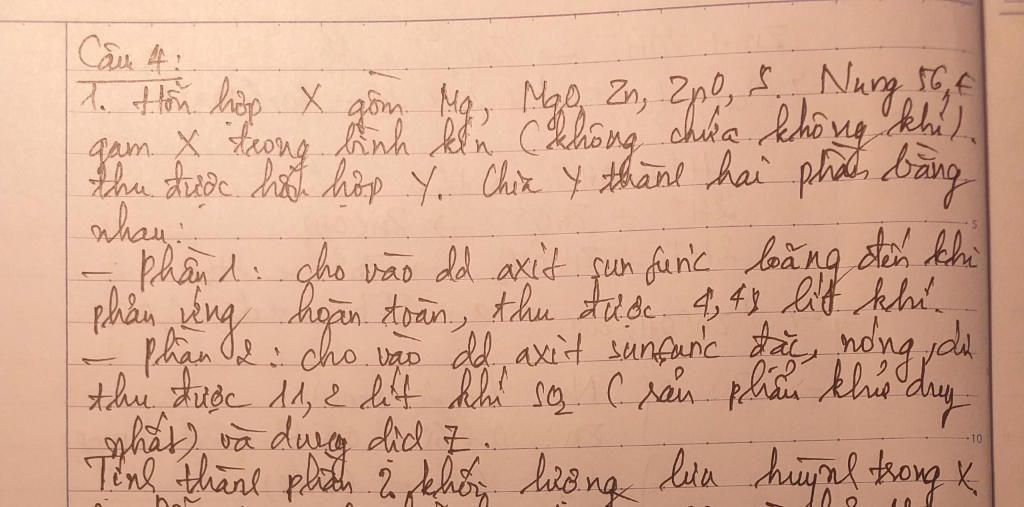 Câu 4:
1. Hỗn hợp X gồm Mg, MgO, Zn, ZnO, S. Nung 56,4
gam X trong bình kín (không chứa không khí)
thu được hỗn hợp Y. Chia Y thành hai phần bằng
nhau:
– Phần 1: cho vào dd axit sunfuric loãng đến khi
phản ứng hoàn toàn, thu được 4,48 lít khí.
– Phần 2: cho vào dd axit sunfuric đặc, nóng, dư
thu được 11,2 lít khí SO2 (sản phẩm khử duy
nhất) và dung dịch Z.
Tính thành phần % khối lượng lưu huỳnh trong X.